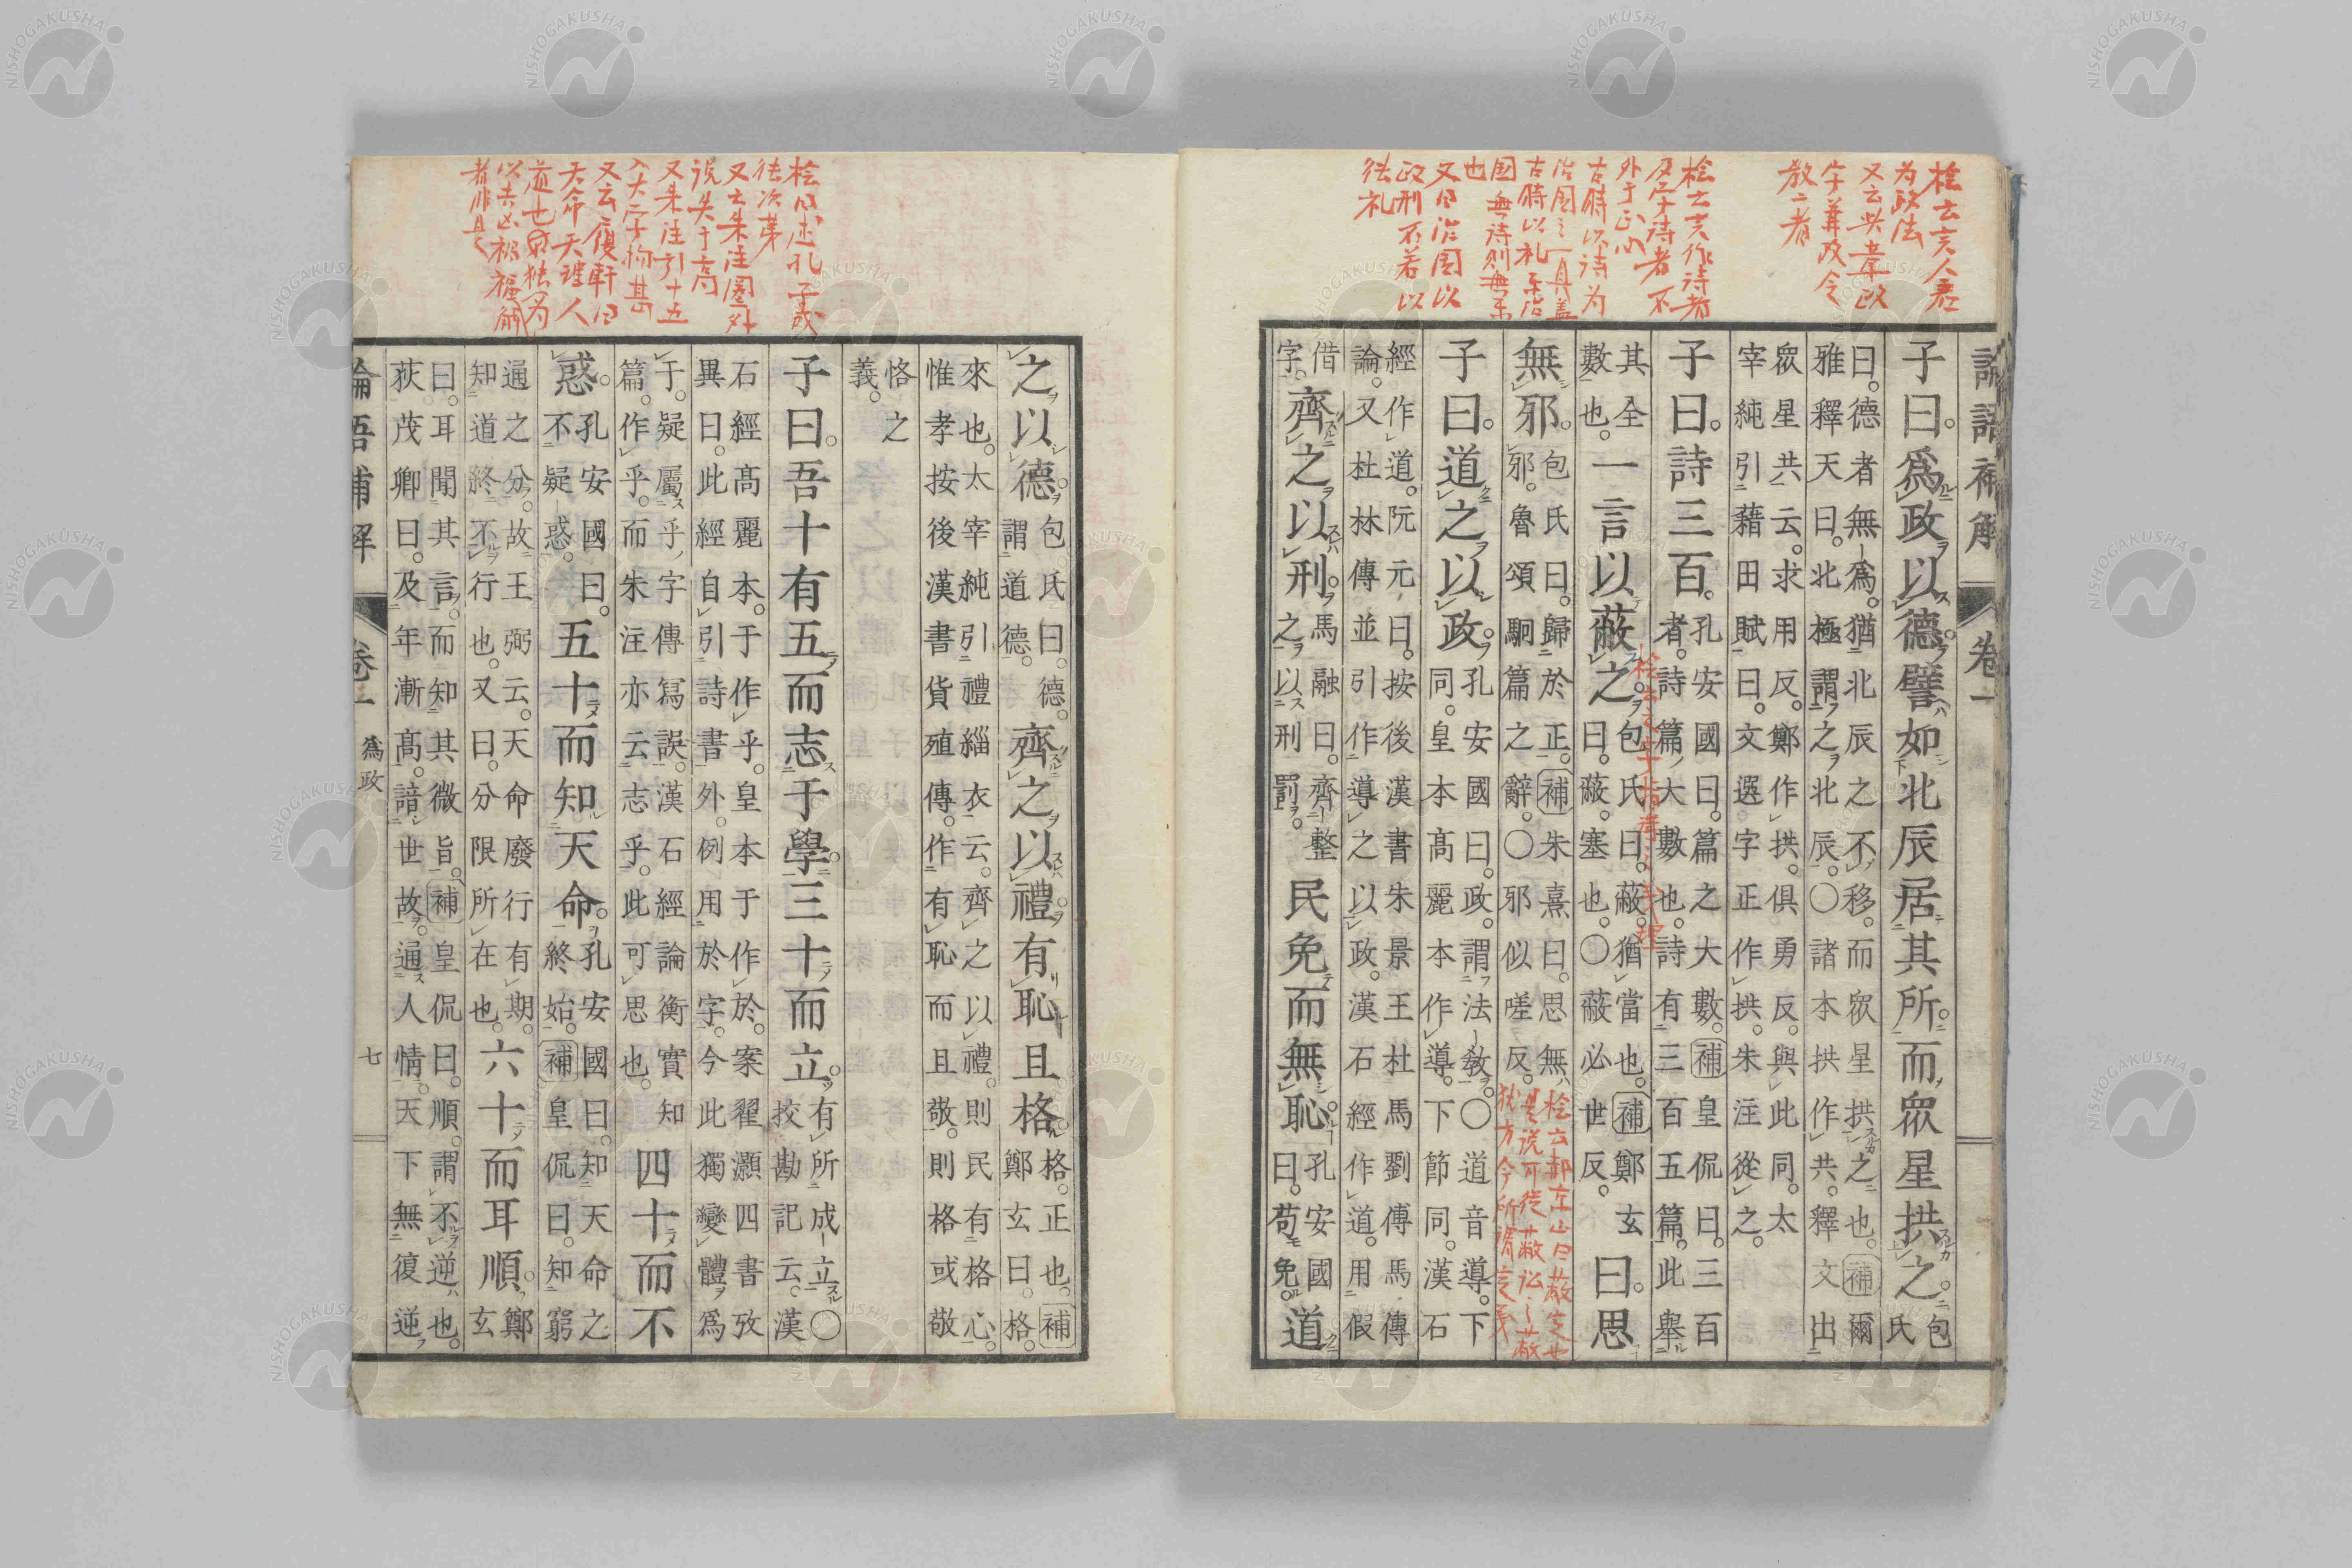 桧云言人君
为政法
又云此章政
字兼政令
教二者
桧云言作詩者
及学詩者不
外于正心
古時以詩为
治国之一具蓋
古時以礼乐治
国無詩則無乐
也
又曰治国以
政刑不若以
德礼
論語補解 卷一
子曰。爲政以德。譬如北辰居其所。而眾星拱之。包氏
曰。德者無爲。猶北辰之不移。而眾星拱之也。補爾
雅釋天曰。北極謂之北辰。〇諸本拱作共。釋文出
眾星共云。求用反。鄭作拱。俱勇反。與此同。太
宰純引藉田賦曰。文選字正作拱。朱注從之。
子曰。詩三百。
孔安國曰。篇之大數。補皇侃曰。三百
者。詩篇大數也。詩有三百五篇。此舉
其全
數也。
一言以蔽之。
包氏曰。蔽。猶當也。補鄭玄
曰。蔽。塞也。〇蔽必世反。
曰。思
無邪。
包氏曰。歸於正。補朱熹曰。思無
邪。魯頌駉篇之辭。〇邪似嗟反。
子曰。道之以政。
孔安國曰。政。謂法教。〇道音導。下
同。皇本高麗本作導。下節同。漢石
經作道。阮元曰。按後漢書朱景王杜馬劉傅馬傳
論。又杜林傳並引作導之以政。漢石經作道。用假
借
字。
齊之以刑。
馬融曰。齊整
之。以刑罰。
民免而無恥。
孔安國
曰。苟免。
道
桧曰述孔子成
德次第
又云朱注圏外
说失于高
又朱注引十五
入大学拘甚
又云履軒曰
天命天理人
道也
以吉凶禍福解
者非是
之以德。
包氏曰。德。
謂道德。
齊之以禮。有恥且格。
格。正也。補
鄭玄曰。格。
來也。太宰純引禮緇衣云。齊之以禮。則民有格心。
惟孝按後漢書貨殖傳。作有恥而且敬。則格或敬
恪之
義。
子曰。吾十有五而志于學。三十而立。
有所成立〇
挍勘記云。漢
石經高麗本。于作乎。皇本于作於。案翟灝四書攷
異曰。此經自引詩書外。例用於字。今此獨變體爲
于。疑屬乎字傳寫誤。漢石經論衡實知
篇。作乎。而朱注亦云志乎。此可思也。
四十而不
惑。
孔安國曰。
不疑惑。
五十而知天命。
孔安國曰。知天命之
終始。補皇侃曰。知窮
通之分。故王弼云。天命廢行有期。
知道終不行也。又曰。分限所在也。
六十而耳順。
鄭
玄
曰。耳聞其言。而知其微旨。補皇侃曰。順。謂不逆也。
荻茂卿曰。及年漸高。諳世故。通人情。天下無復逆
論語補解 卷一 爲政 七
NISHOGAKUSHA